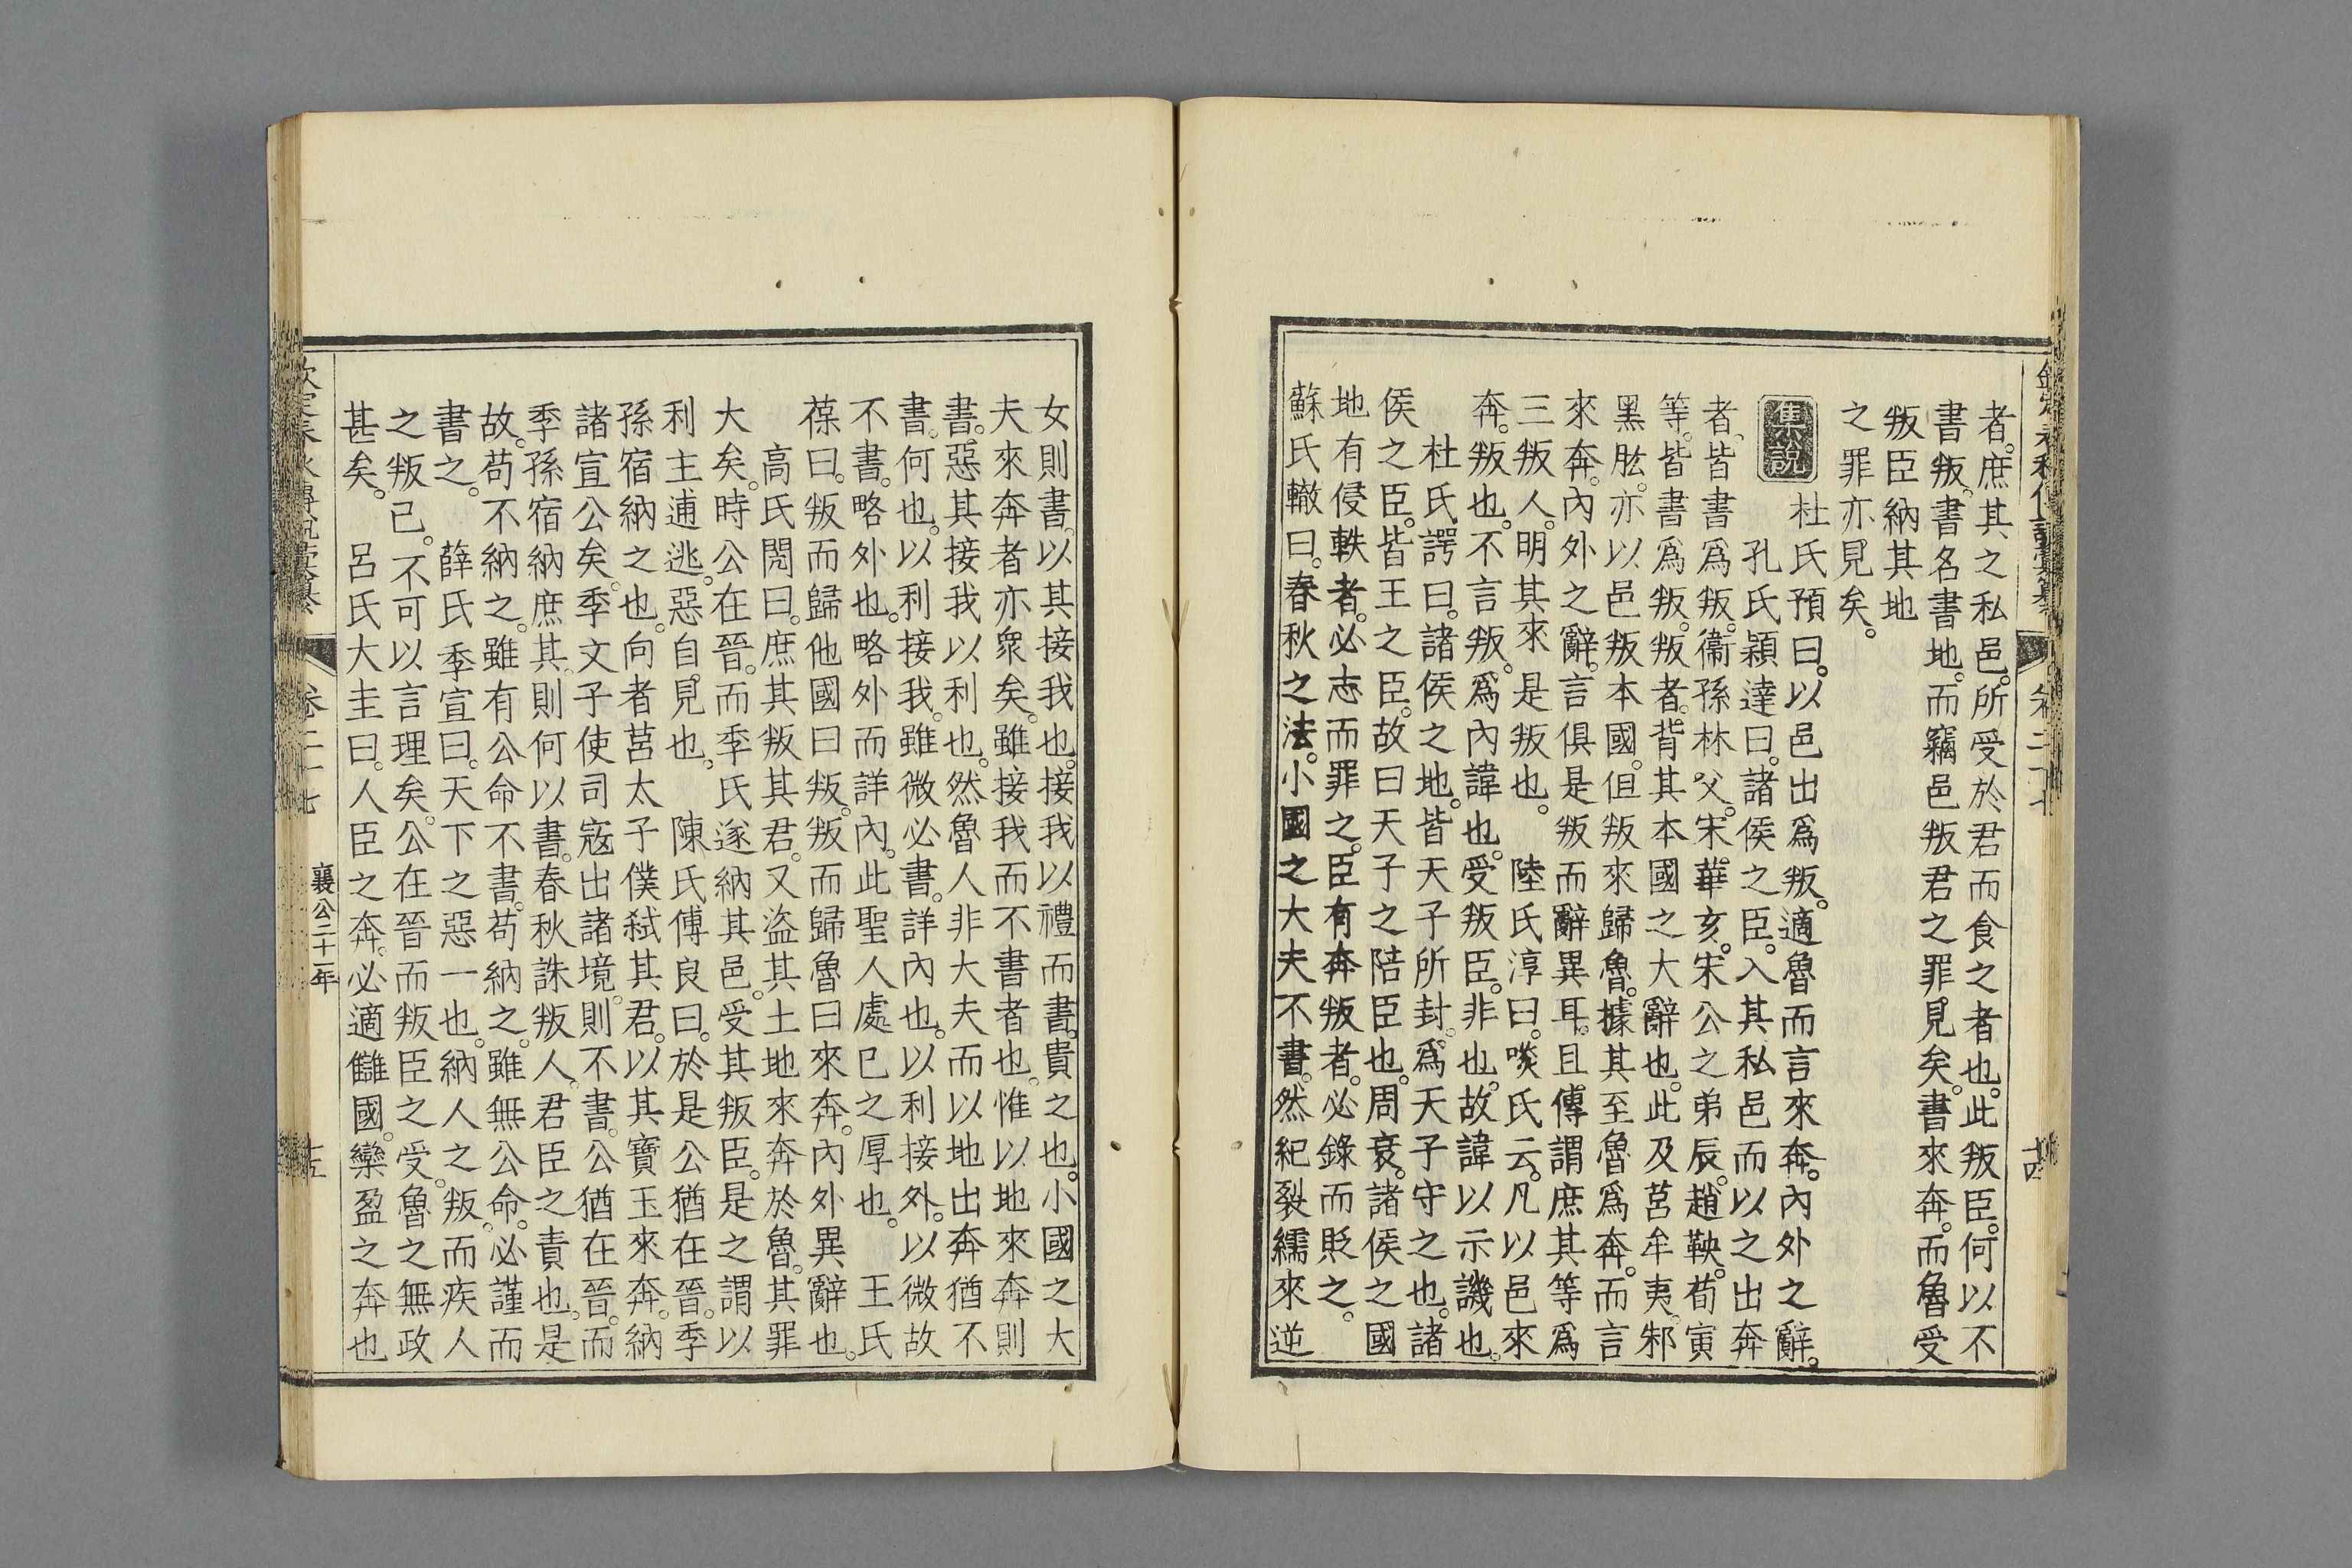 者。庶其之私邑。所受於君而食之者也。此叛臣。何以不
書叛。書名書地。而竊邑叛君之罪見矣。書來奔。而魯受
叛臣納其地
之罪亦見矣。
集說
杜氏預曰。以邑出爲叛。適魯而言來奔。內外之辭。
孔氏穎達曰。諸侯之臣。入其私邑而以之出奔
者。皆書爲叛。衞孫林父。宋華亥。宋公之弟辰。趙鞅。荀寅
等。皆書爲叛。叛者。背其本國之大辭也。此及莒牟夷。邾
黑肱。亦以邑叛本國。但叛來歸魯。據其至魯爲奔。而言
來奔。內外之辭。言俱是叛而辭異耳。且傳謂庶其等爲
三叛人。明其來是叛也。　陸氏淳曰。啖氏云。凡以邑來
奔。叛也。不言叛。爲內諱也。受叛臣。非也。故諱以示譏也。
杜氏諤曰。諸侯之地。皆天子所封。爲天子守之也。諸
侯之臣。皆王之臣。故曰天子之陪臣也。周衰。諸侯之國
地有侵軼者。必志而罪之。臣有奔叛者。必錄而貶之。
蘇氏轍曰。春秋之法。小國之大夫不書。然紀裂繻來逆
女則書。以其接我也。接我以禮而書。貴之也。小國之大
夫來奔者亦衆矣。雖接我而不書者也。惟以地來奔則
書。惡其接我以利也。然魯人非大夫而以地出奔猶不
書。何也。以利接我。雖微必書。詳內也。以利接外。以微故
不書。略外也。略外而詳內。此聖人處已之厚也。　王氏
葆曰。叛而歸他國曰叛。叛而歸魯曰來奔。內外異辭也。
高氏閌曰。庶其叛其君。又盜其土地來奔於魯。其罪
大矣。時公在晉。而季氏遂納其邑。受其叛臣。是之謂以
利主逋逃。惡自見也。　陳氏傅良曰。於是公猶在晉。季
孫宿納之也。向者莒太子僕弑其君。以其寶玉來奔。納
諸宣公矣。季文子使司寇出諸境。則不書。公猶在晉。而
季孫宿納庶其。則何以書。春秋誅叛人。君臣之責也。是
故。苟不納之。雖有公命不書。苟納之。雖無公命。必謹而
書之。　薛氏季宣曰。天下之惡一也。納人之叛。而疾人
之叛己。不可以言理矣。公在晉而叛臣之受。魯之無政
甚矣。　呂氏大圭曰。人臣之奔。必適讎國。欒盈之奔也
卷二十七
襄公二十一年
十五